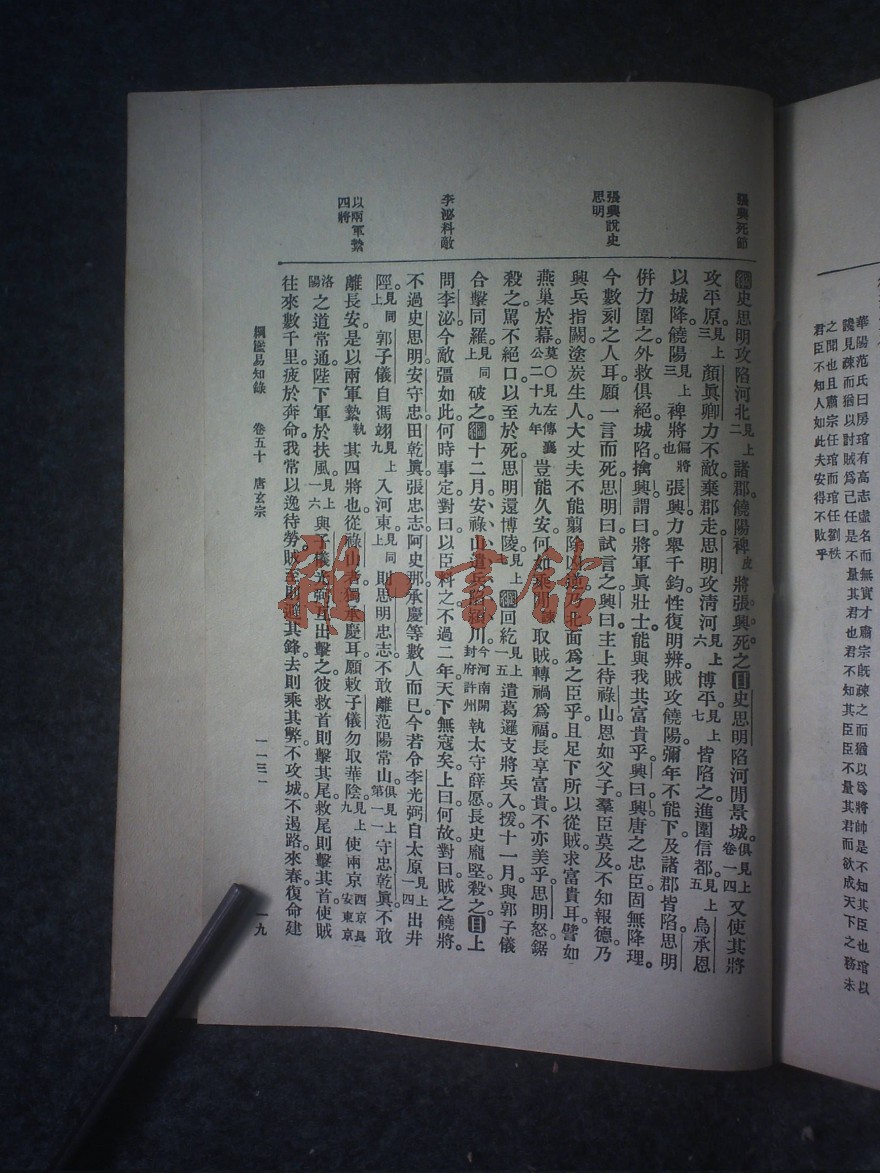 華陽范氏曰房琯有高志虛名而無實才肅宗旣疎之而猶以爲將帥是不知其臣也琯以
讒見疎而猶以討賊爲己任是不量其君也君不知其臣臣不量其君而欲成天下之務未
之聞也且官琯任官而琯任劉秩
君臣不知人如此夫安得不敗乎
張興死節
張興說史思明
李泌料敵
以兩軍縶四將
綱史思明攻陷河北見上二諸郡饒陽裨皮將張興死之目史思明陷河閒景城俱見上卷一四又使其將
攻平原見上三顏眞卿力不敵棄郡走思明攻淸河見上六博平見上七皆陷之進圍信都見上五烏承恩
以城降饒陽見上三裨將偏將也張興力舉千鈞性復明辨賊攻饒陽彌年不能下及諸郡皆陷思明
併力圍之外救俱絕城陷擒興謂曰將軍眞壯士能與我共富貴乎興曰興唐之忠臣固無降理
今數刻之人耳願一言而死思明曰試言之興曰主上待祿山恩如父子羣臣莫及不知報德乃
興兵指闕塗炭生人大丈夫不能翦除凶逆乃北面爲之臣乎且足下所以從賊求富貴耳譬如
燕巢於幕莫〇見左傳襄公二十九年豈能久安何如乘閒取賊轉禍爲福長享富貴不亦美乎思明怒鋸
殺之罵不絕口以至於死思明還博陵見上綱回紇見上一五遣葛邏支將兵入援十一月與郭子儀
合擊同羅見同上破之綱十二月安祿山遣兵陷潁川今河南開封府許州執太守薛愿長史龐堅殺之目上
問李泌今敵彊如此何時事定對曰以臣料之不過二年天下無寇矣上曰何故對曰賊之饒將
不過史思明安守忠田乾眞張忠志阿史那承慶等數人而已今若令李光弼自太原見上一四出井
陘見同上郭子儀自馮翊見上九入河東見同上則思明忠志不敢離范陽常山俱見上第一一守忠乾眞不敢
離長安是以兩軍縶執其四將也從祿山者獨承慶耳願敕子儀勿取華陰見上九使兩京西京長安東京
洛陽之道常通陛下軍於扶風見上一六與子儀光弼互出擊之彼救首則擊其尾救尾則擊其首使賊
往來數千里疲於奔命我常以逸待勞賊至則避其鋒去則乘其弊不攻城不遏路來春復命建
綱鑑易知錄　卷五十　唐玄宗　一一三一　一九
雅·書館